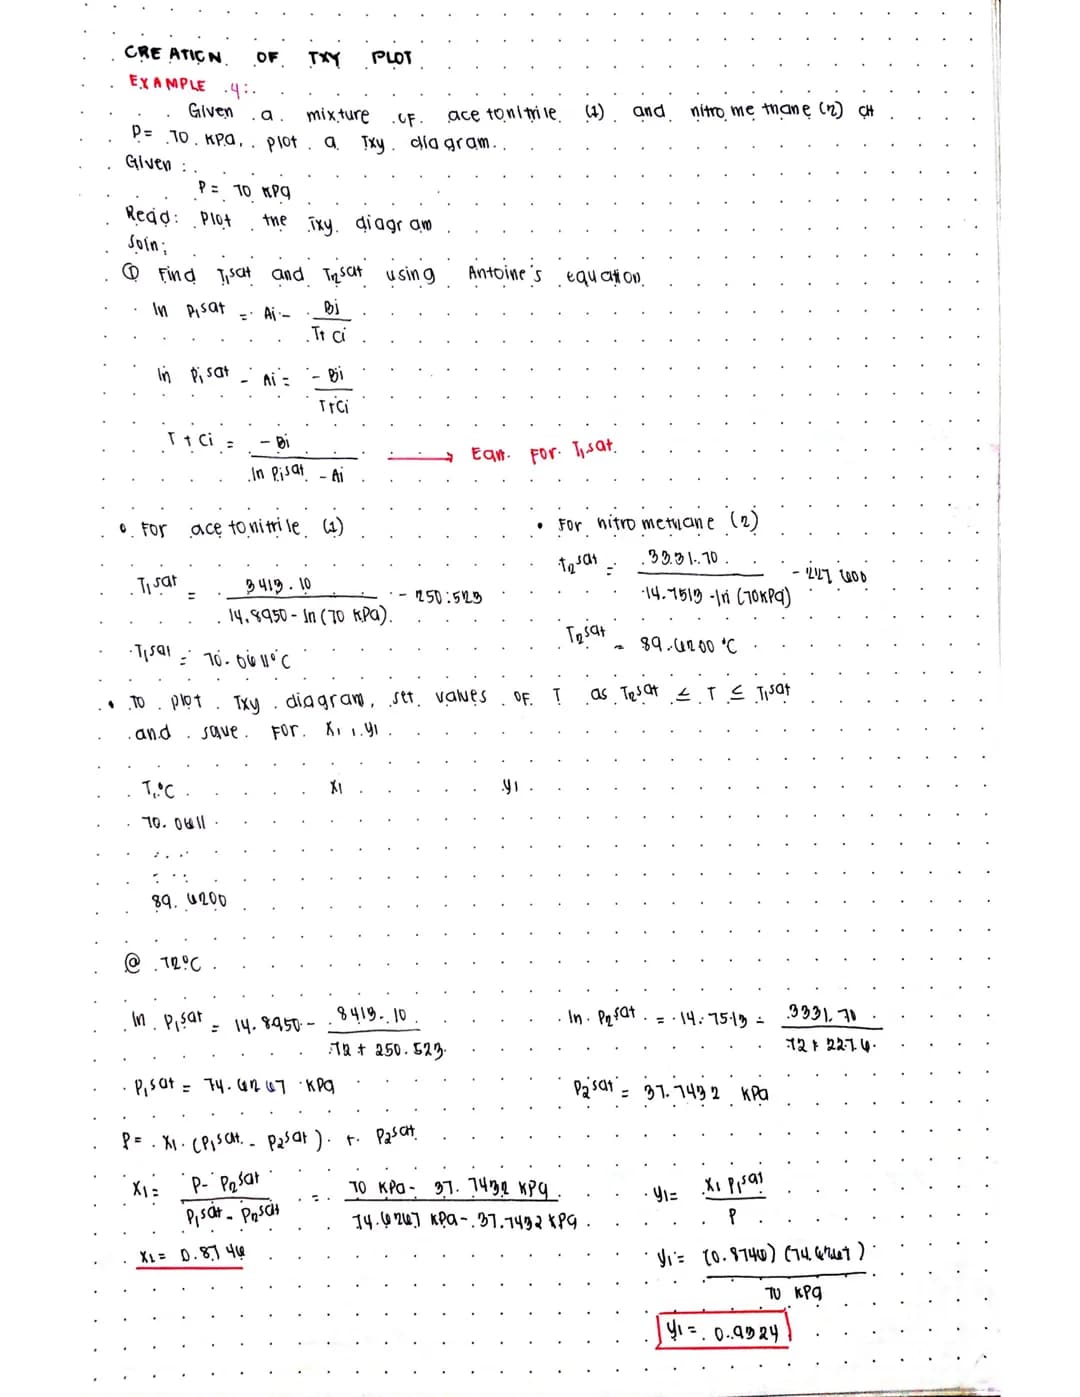 CREATION OF TXY PLOT
EXAMPLE 4:
Given a mixture of acetonitrile (1) and nitromethane (2) at
P = 70 kPa, plot a Txy diagram.
Given:
P = 70 kPa
Reqd: Plot the Txy diagram
Soln:
① Find T₁sat and T₂sat using Antoine's equation
ln Pisat = Ai - Bi / T + Ci
ln Pisat - Ai = - Bi / T + Ci
T + Ci = - Bi / ln Pisat - Ai → Eqn. for Tisat
• For acetonitrile (1)
T₁sat = 3413.10 / 14.8950 - ln (70 kPa) - 250.523
T₁sat = 70.0611°C
• For nitromethane (2)
T₂sat = 3331.70 / 14.7513 - ln (70kPa) - 227.600
T₂sat = 89.6200 °C
• To plot Txy diagram, set values of T as T₂sat ≤ T ≤ T₁sat
and save for x₁, y₁
T, °C x₁ y₁
70.0611
⋮ ⋮
89.6200
@ 72°C
ln P₁sat = 14.8950 - 8413.10 / 72 + 250.523
ln P₂sat = 14.7513 - 3331.70 / 72 + 227.6
P₁sat = 74.6267 kPa
P₂sat = 37.7432 kPa
P = x₁ (P₁sat - P₂sat) + P₂sat
x₁ = P - P₂sat / P₁sat - P₂sat = 70 kPa - 37.7432 kPa / 74.6267 kPa - 37.7432 kPa
x₁ = 0.8746
y₁ = x₁ P₁sat / P
y₁ = (0.8746) (74.6267) / 70 kPa
y₁ = 0.9324